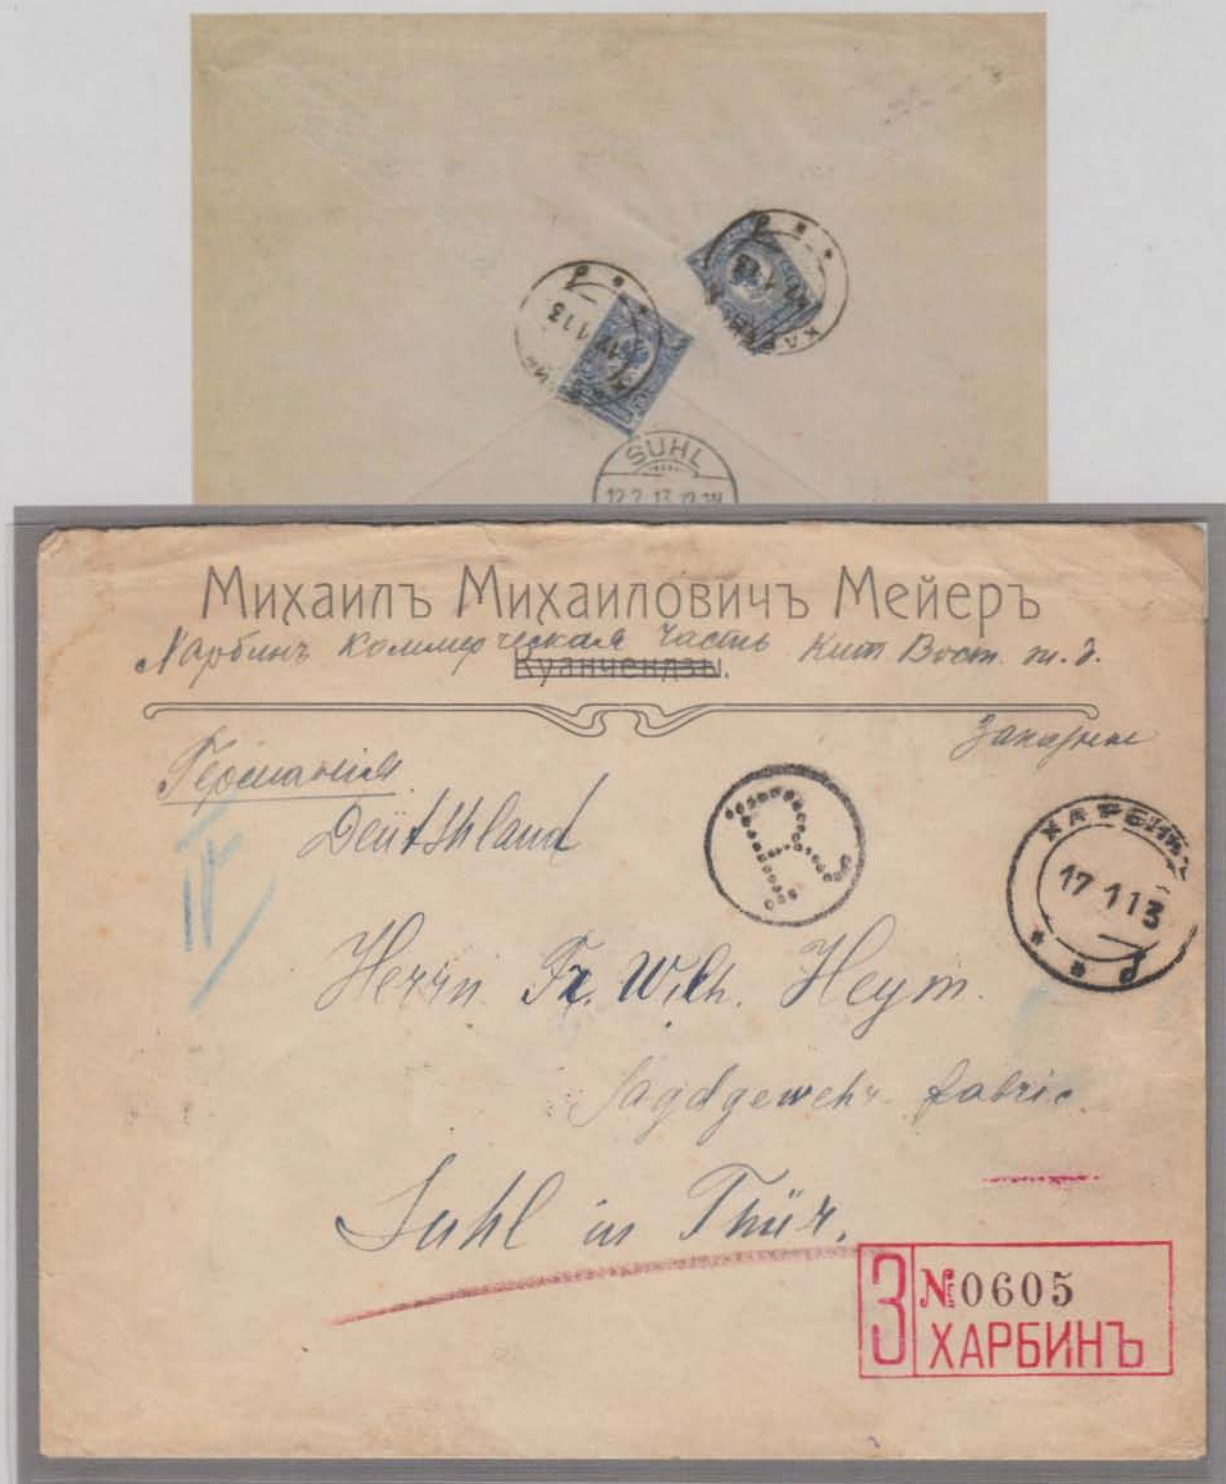 ХАРБИНЪ
113
SUHL
12.2.13
Михаилъ Михаиловичъ Мейеръ
Харбинъ Коммерческая Часть Кит Вост. ж. д.
Куанчендзы.
Заказное
Германія
Deütshland
R
ХАРБИНЪ
17 1 13
Р
Herrn Fr. Wilh. Heym.
Jagdgewehr fabric.
Suhl in Thür.
З
№0605
ХАРБИНЪ